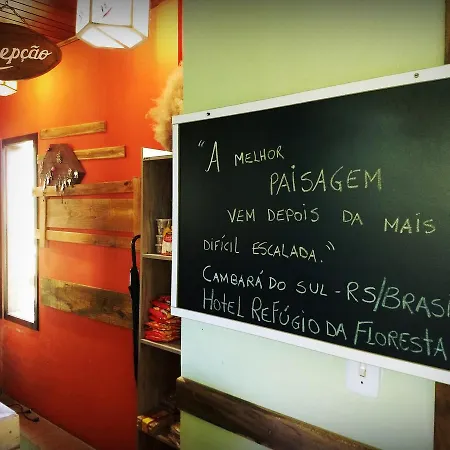 epção
"A MELHOR
PAISAGEM
VEM DEPOIS DA MAIS
DIFÍCIL ESCALADA."
CAMBARÁ DO SUL - RS/BRASI
HOTEL REFÚGIO DA FLORESTA